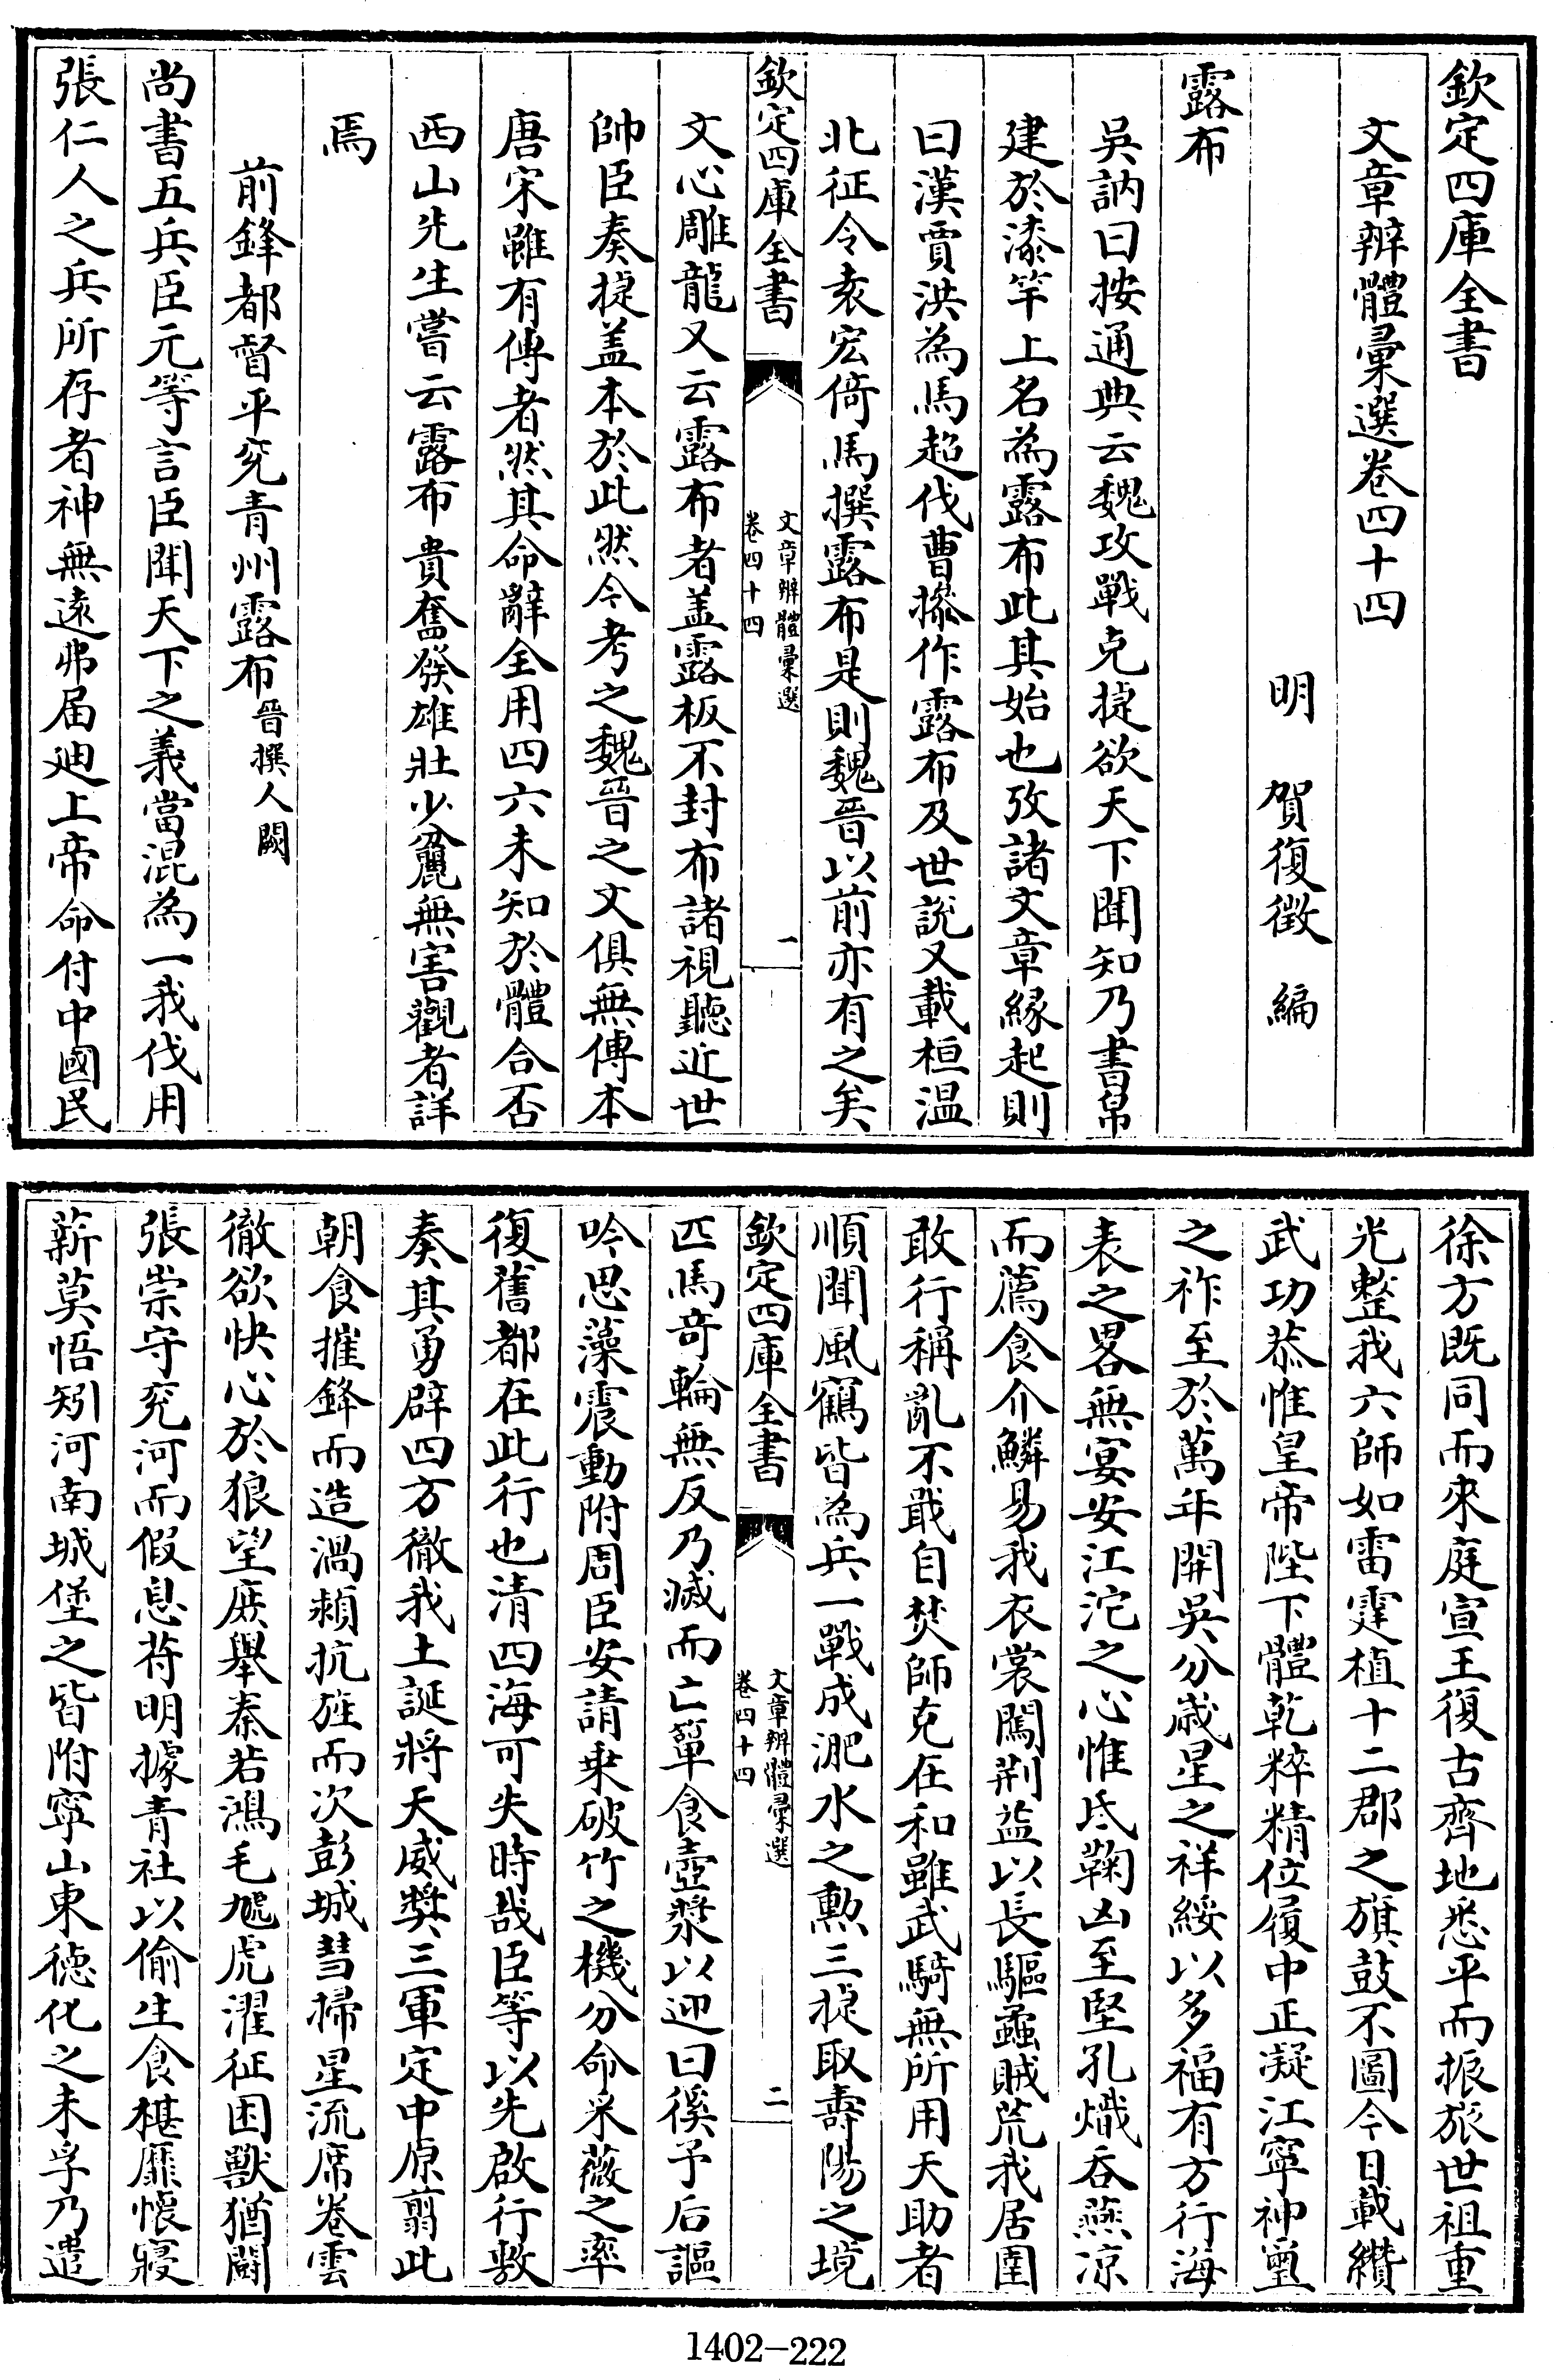 欽定四庫全書
文章辨體彙選卷四十四
明　賀復徵　編
露布
吳訥曰按通典云魏攻戰克捷欲天下聞知乃書帛
建於漆竿上名為露布此其始也攷諸文章緣起則
曰漢賈洪為馬超伐曹操作露布及世說又載桓温
北征令袁宏倚馬撰露布是則魏晉以前亦有之矣
欽定四庫全書
文章辨體彙選
卷四十四
一
文心雕龍又云露布者盖露板不封布諸視聽近世
帥臣奏捷盖本於此然今考之魏晉之文俱無傳本
唐宋雖有傳者然其命辭全用四六未知於體合否
西山先生嘗云露布貴奮發雄壯少麤無害觀者詳
焉
前鋒都督平兗青州露布晉撰人闕
尚書五兵臣元等言臣聞天下之義當混為一我伐用
張仁人之兵所存者神無遠弗届廸上帝命付中國民
徐方既同而來庭宣王復古齊地悉平而振旅世祖重
光整我六師如雷霆植十二郡之旗鼓不圖今日載纘
武功恭惟皇帝陛下體乾粹精位履中正凝江寧神璽
之祚至於萬年開吳分歲星之祥綏以多福有方行海
表之畧無宴安江沱之心惟氐鞠凶至堅孔熾吞燕凉
而薦食介鱗易我衣裳闖荆益以長驅蝨賊荒我居圉
敢行稱亂不戢自焚師克在和雖武騎無所用天助者
順聞風鶴皆為兵一戰成淝水之勲三捷取壽陽之境
欽定四庫全書
文章辨體彙選
卷四十四
二
匹馬竒輪無反乃滅而亡簞食壺漿以迎曰徯予后謳
吟思藻震動附周臣安請乗破竹之機分命采薇之率
復舊都在此行也清四海可失時哉臣等以先啟行敷
奏其勇辟四方徹我土誕將天威奬三軍定中原翦此
朝食摧鋒而造渦潁抗旌而次彭城彗掃星流席卷雲
徹欲快心於狼望庶舉秦若鴻毛虓虎濯征困獸猶鬭
張崇守兗河而假息苻明據青社以偷生食椹靡懷寢
薪莫悟矧河南城堡之皆附寧山東德化之未孚乃遣
1402-222